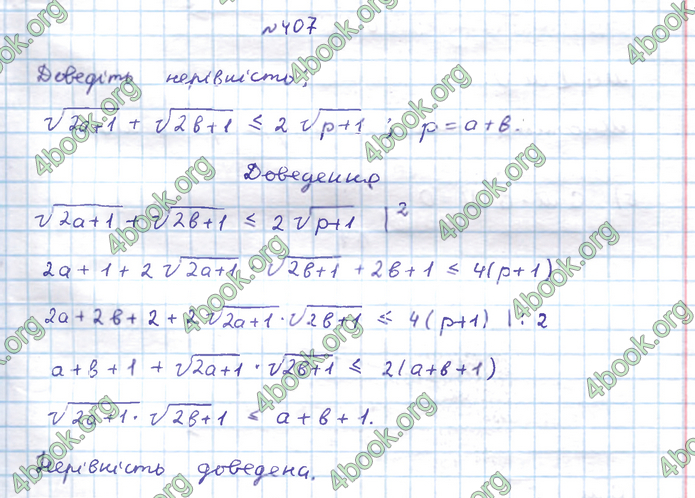 №407
Доведіть нерівність:
√2a+1 + √2b+1 ≤ 2√p+1 ; p = a+b.
Доведення
√2a+1 + √2b+1 ≤ 2√p+1 |²
2a + 1 + 2√2a+1 · √2b+1 + 2b + 1 ≤ 4(p+1)
2a + 2b + 2 + 2√2a+1 · √2b+1 ≤ 4(p+1) | : 2
a + b + 1 + √2a+1 · √2b+1 ≤ 2(a+b+1)
√2a+1 · √2b+1 ≤ a + b + 1.
Нерівність доведена.
4book.org
4book.org
4book.org
4book.org
4book.org
4book.org
4book.org
4book.org
4book.org
4book.org
4book.org
4book.org
4book.org